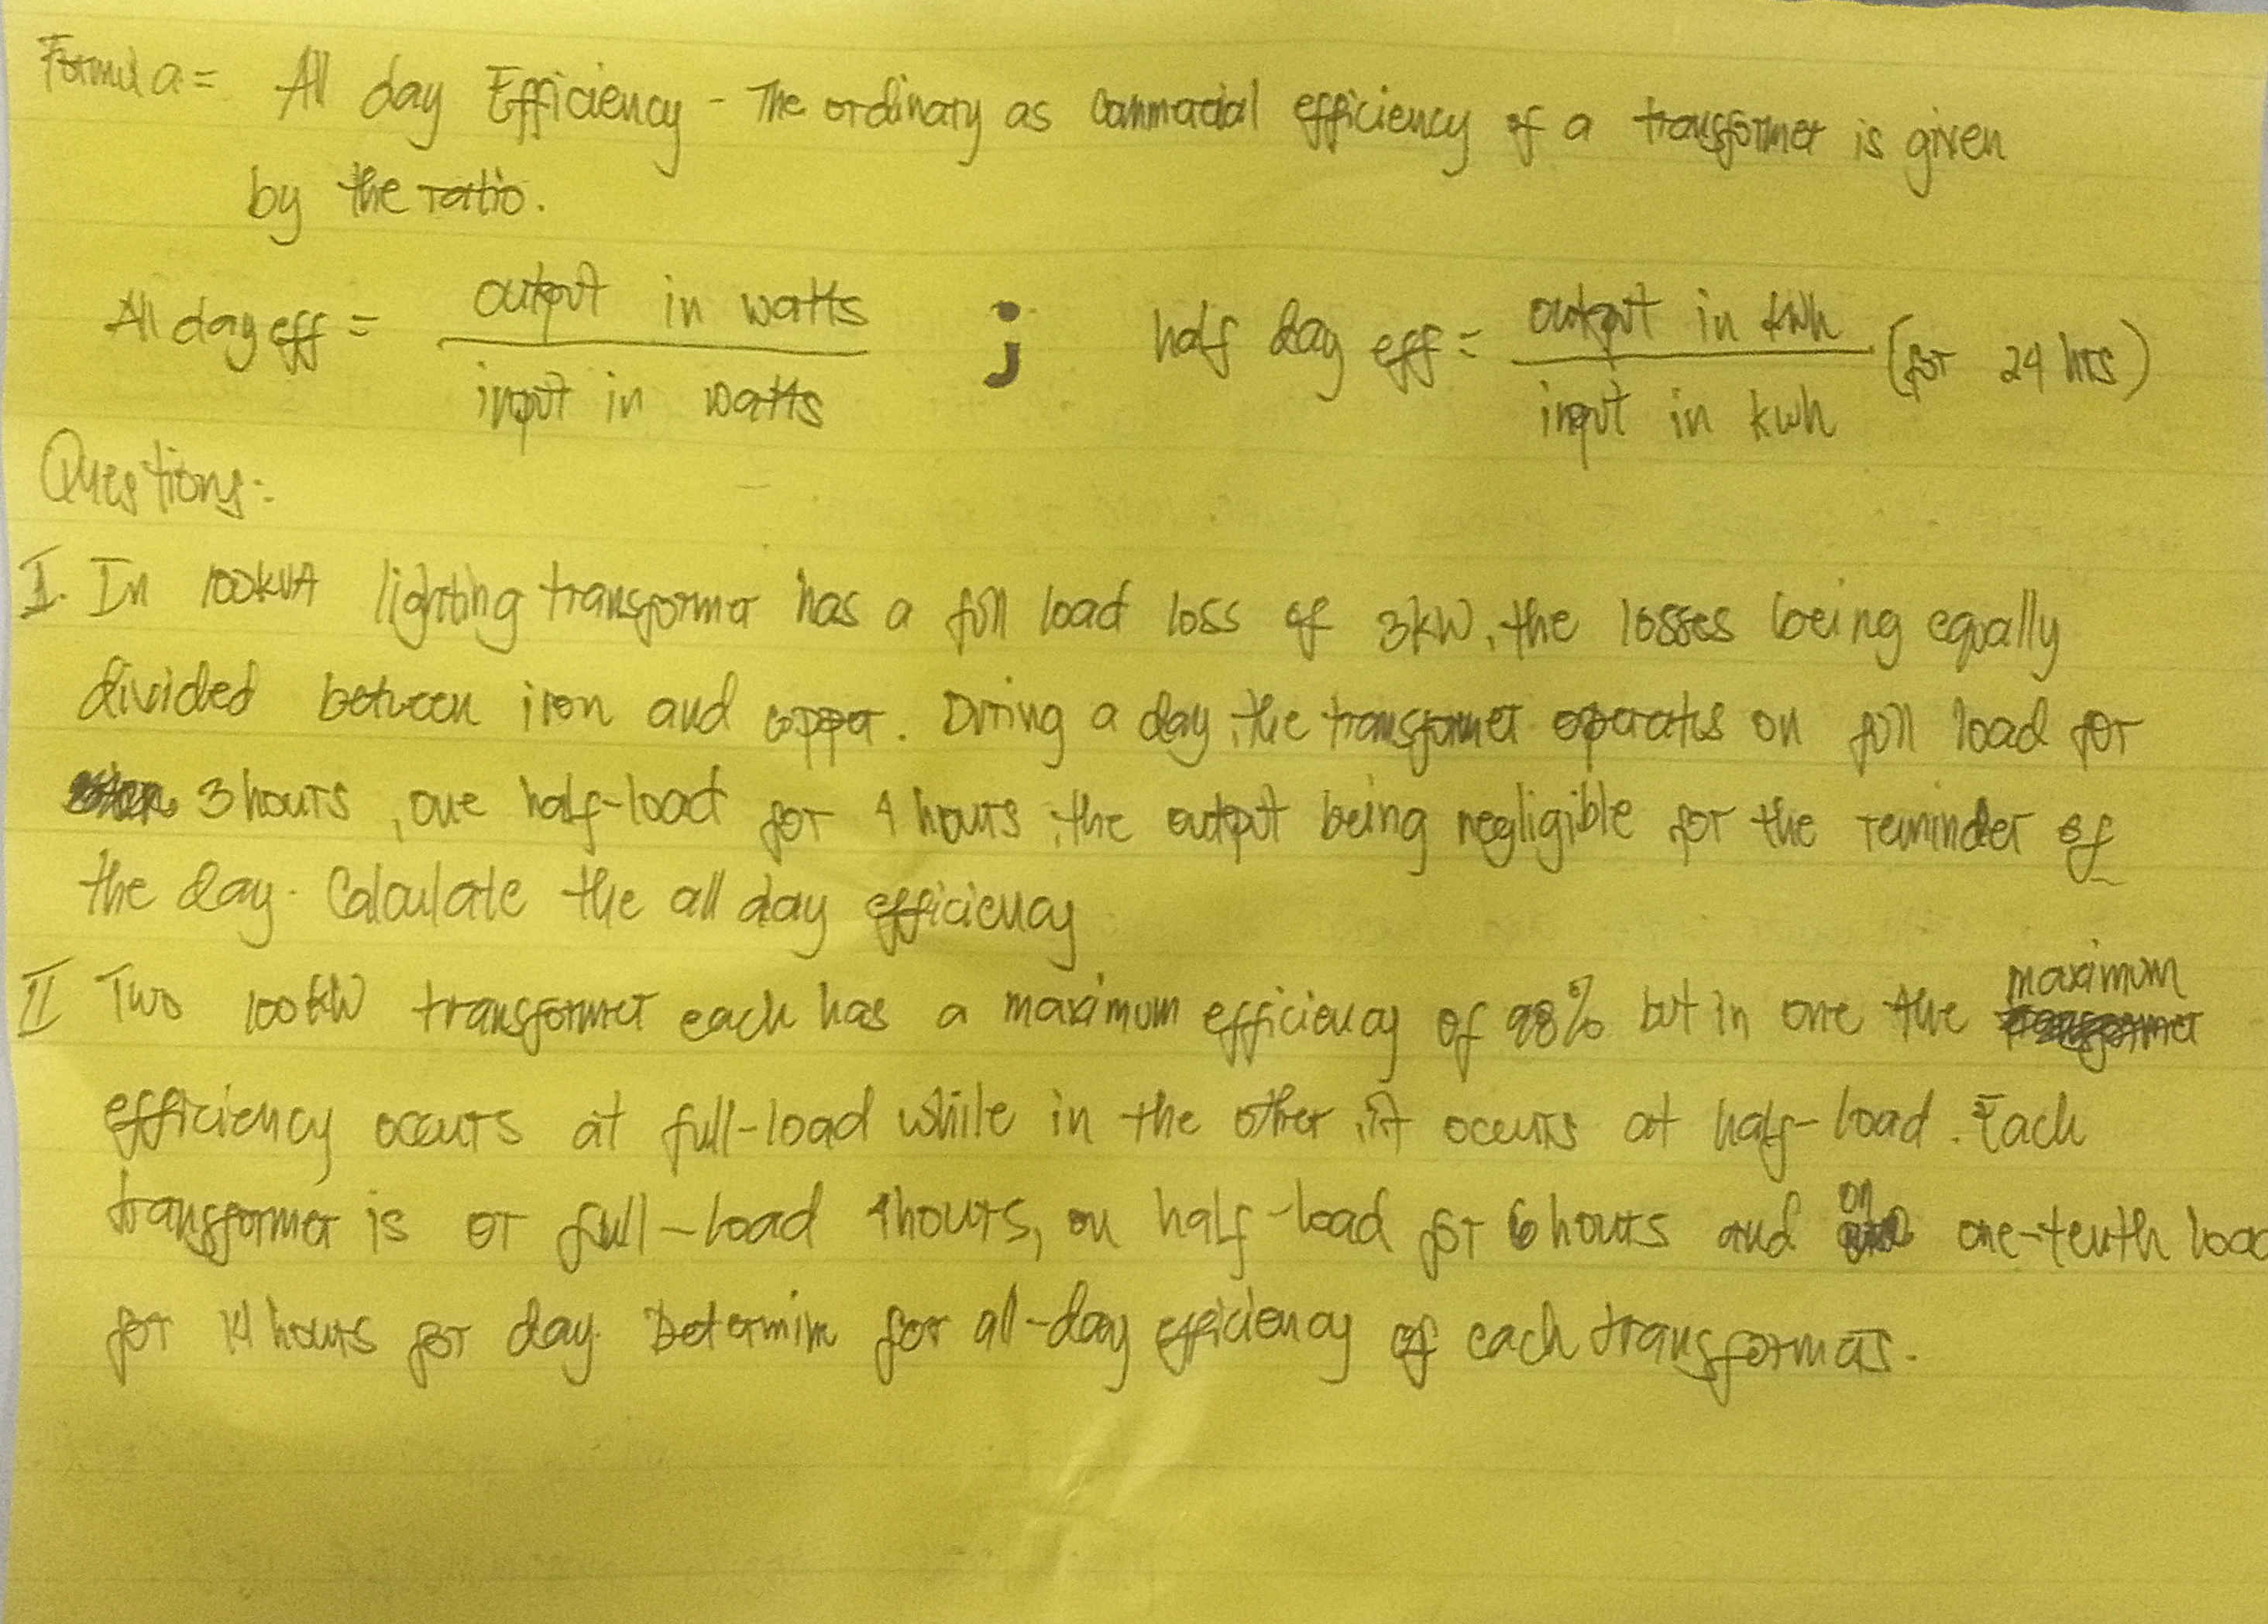 Formula = All day Efficiency - The ordinary as Commacial efficiency of a transformer is given
by the ratio.
All day eff = output in watts / input in watts ; half day eff = output in kwh / input in kwh (for 24 hrs)
Questions:
I. In 100kVA lighting transformer has a full load loss of 3kW, the losses being equally
divided between iron and copper. During a day, the transformer operates on full load for
3 hours, one half-load for 4 hours, the output being negligible for the reminder of
the day. Calculate the all day efficiency
II Two 100kW transformer each has a maximum efficiency of 98% but in one the maximum
efficiency occurs at full-load while in the other, it occurs at half-load. Each
transformer is or full-load 4hours, on half-load for 6 hours and on one-tenth load
for 14 hours for day. Determine for all-day efficiency of each transformers.